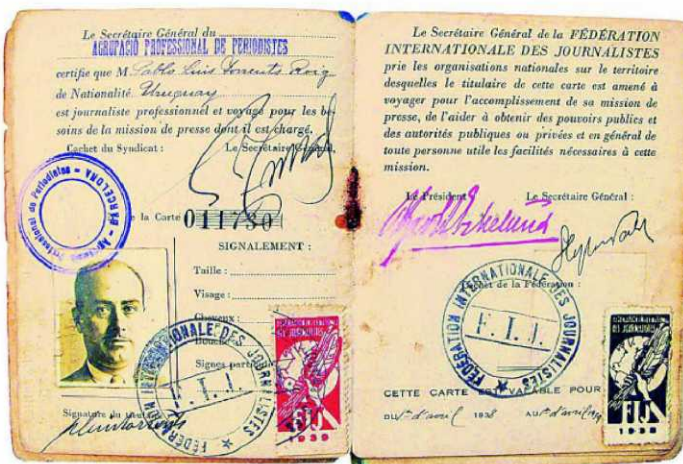 Le Secrétaire Général du
AGRUPACIÓ PROFESSIONAL DE PERIODISTES
certifie que M Pablo Luis Torrents Roig
de Nationalité Uruguay
est journaliste professionnel et voyage pour les be-
soins de la mission de presse dont il est chargé.
Cachet du Syndicat : Le Secrétaire Général,
Agrupació Professional de Periodistes - BARCELONA
de la Carte 011730
SIGNALEMENT :
Taille :
Visage :
Cheveux :
Bouche
Signes particuliers
Signature du titulaire
FÉDÉRATION INTERNATIONALE DES JOURNALISTES
F. I. J.
FIJ
1939
Le Secrétaire Général de la FÉDÉRATION
INTERNATIONALE DES JOURNALISTES
prie les organisations nationales sur le territoire
desquelles le titulaire de cette carte est amené à
voyager pour l'accomplissement de sa mission de
presse, de l'aider à obtenir des pouvoirs publics et
des autorités publiques ou privées et en général de
toute personne utile les facilités nécessaires à cette
mission.
Le Président Le Secrétaire Général :
Cachet de la Fédération :
FÉDÉRATION INTERNATIONALE DES JOURNALISTES
F. I. J.
CETTE CARTE EST VALABLE POUR
DU 1er d'avril 1938 AU 1er d'avril
FIJ
1938